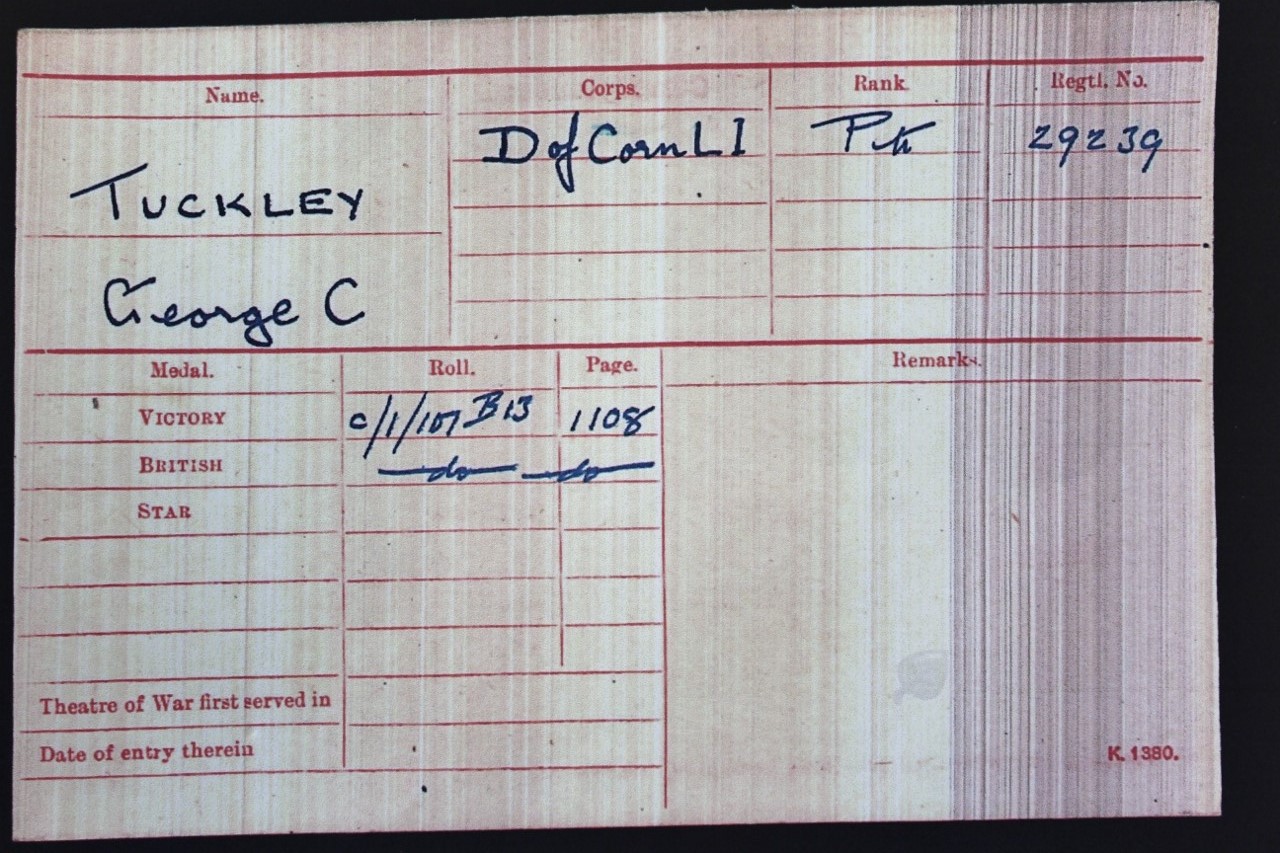 Name. Corps. Rank. Regtl. No.
D of Corn L I Pte 29239
TUCKLEY
George C
Medal. Roll. Page. Remarks.
VICTORY C/1/107 B13 1108
BRITISH —do— —do—
STAR
Theatre of War first served in
Date of entry therein
K. 1380.